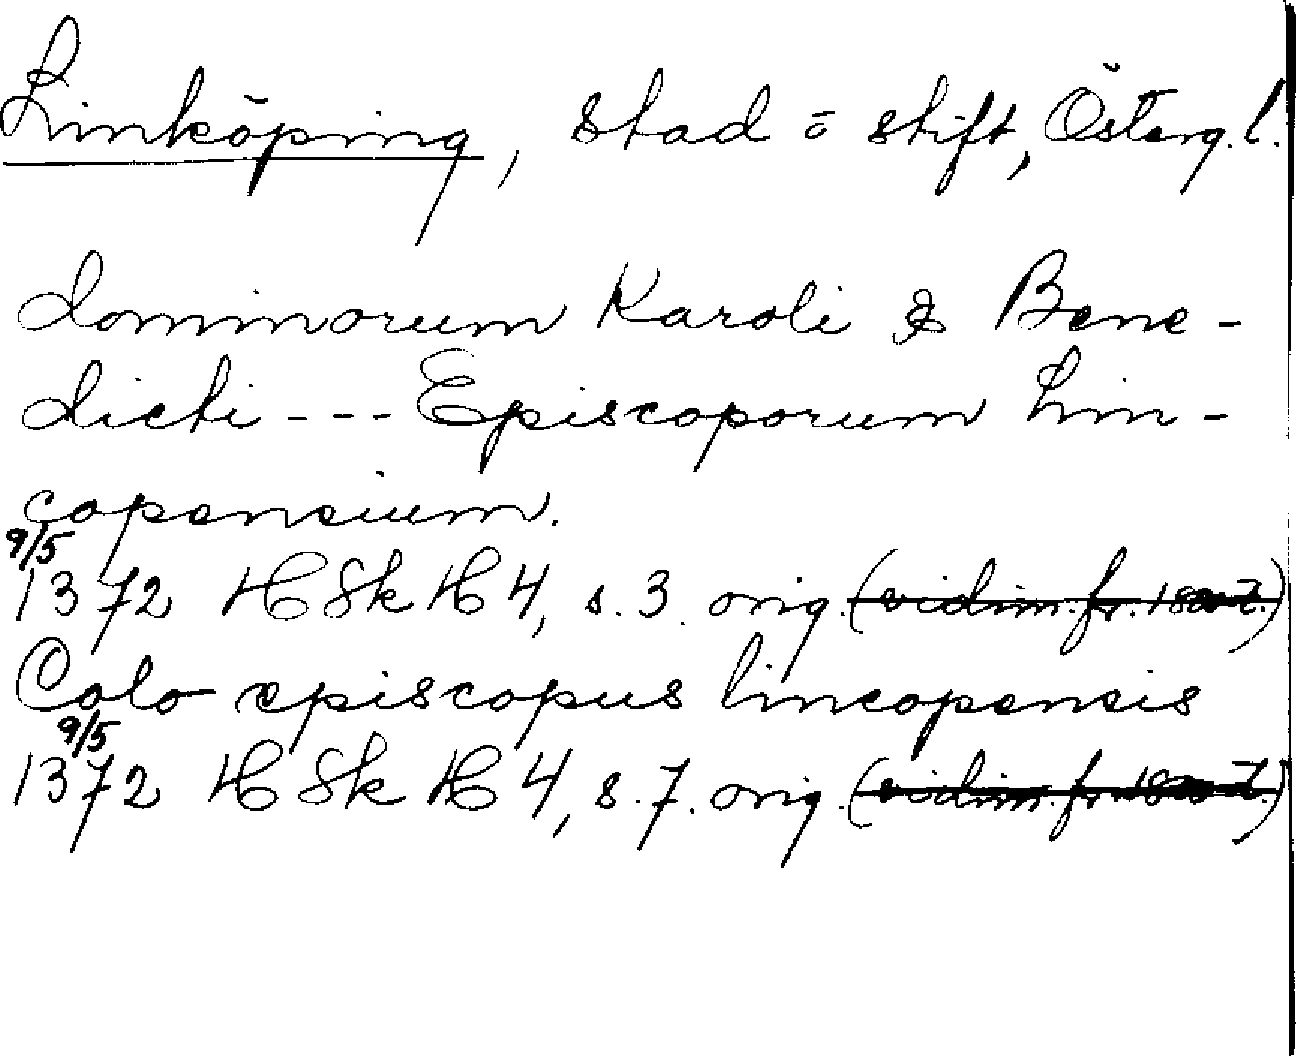 Linköping, stad o stift, Österg. l.
dominorum Karoli & Bene-
dicti --- Episcoporum Lin-
copensium.
9/5
1372 HSk H 4, s. 3. orig. (vidim. fr.
Colo episcopus lincopensis
9/5
1372 HSk H 4, s. 7. orig. (vidim. fr.